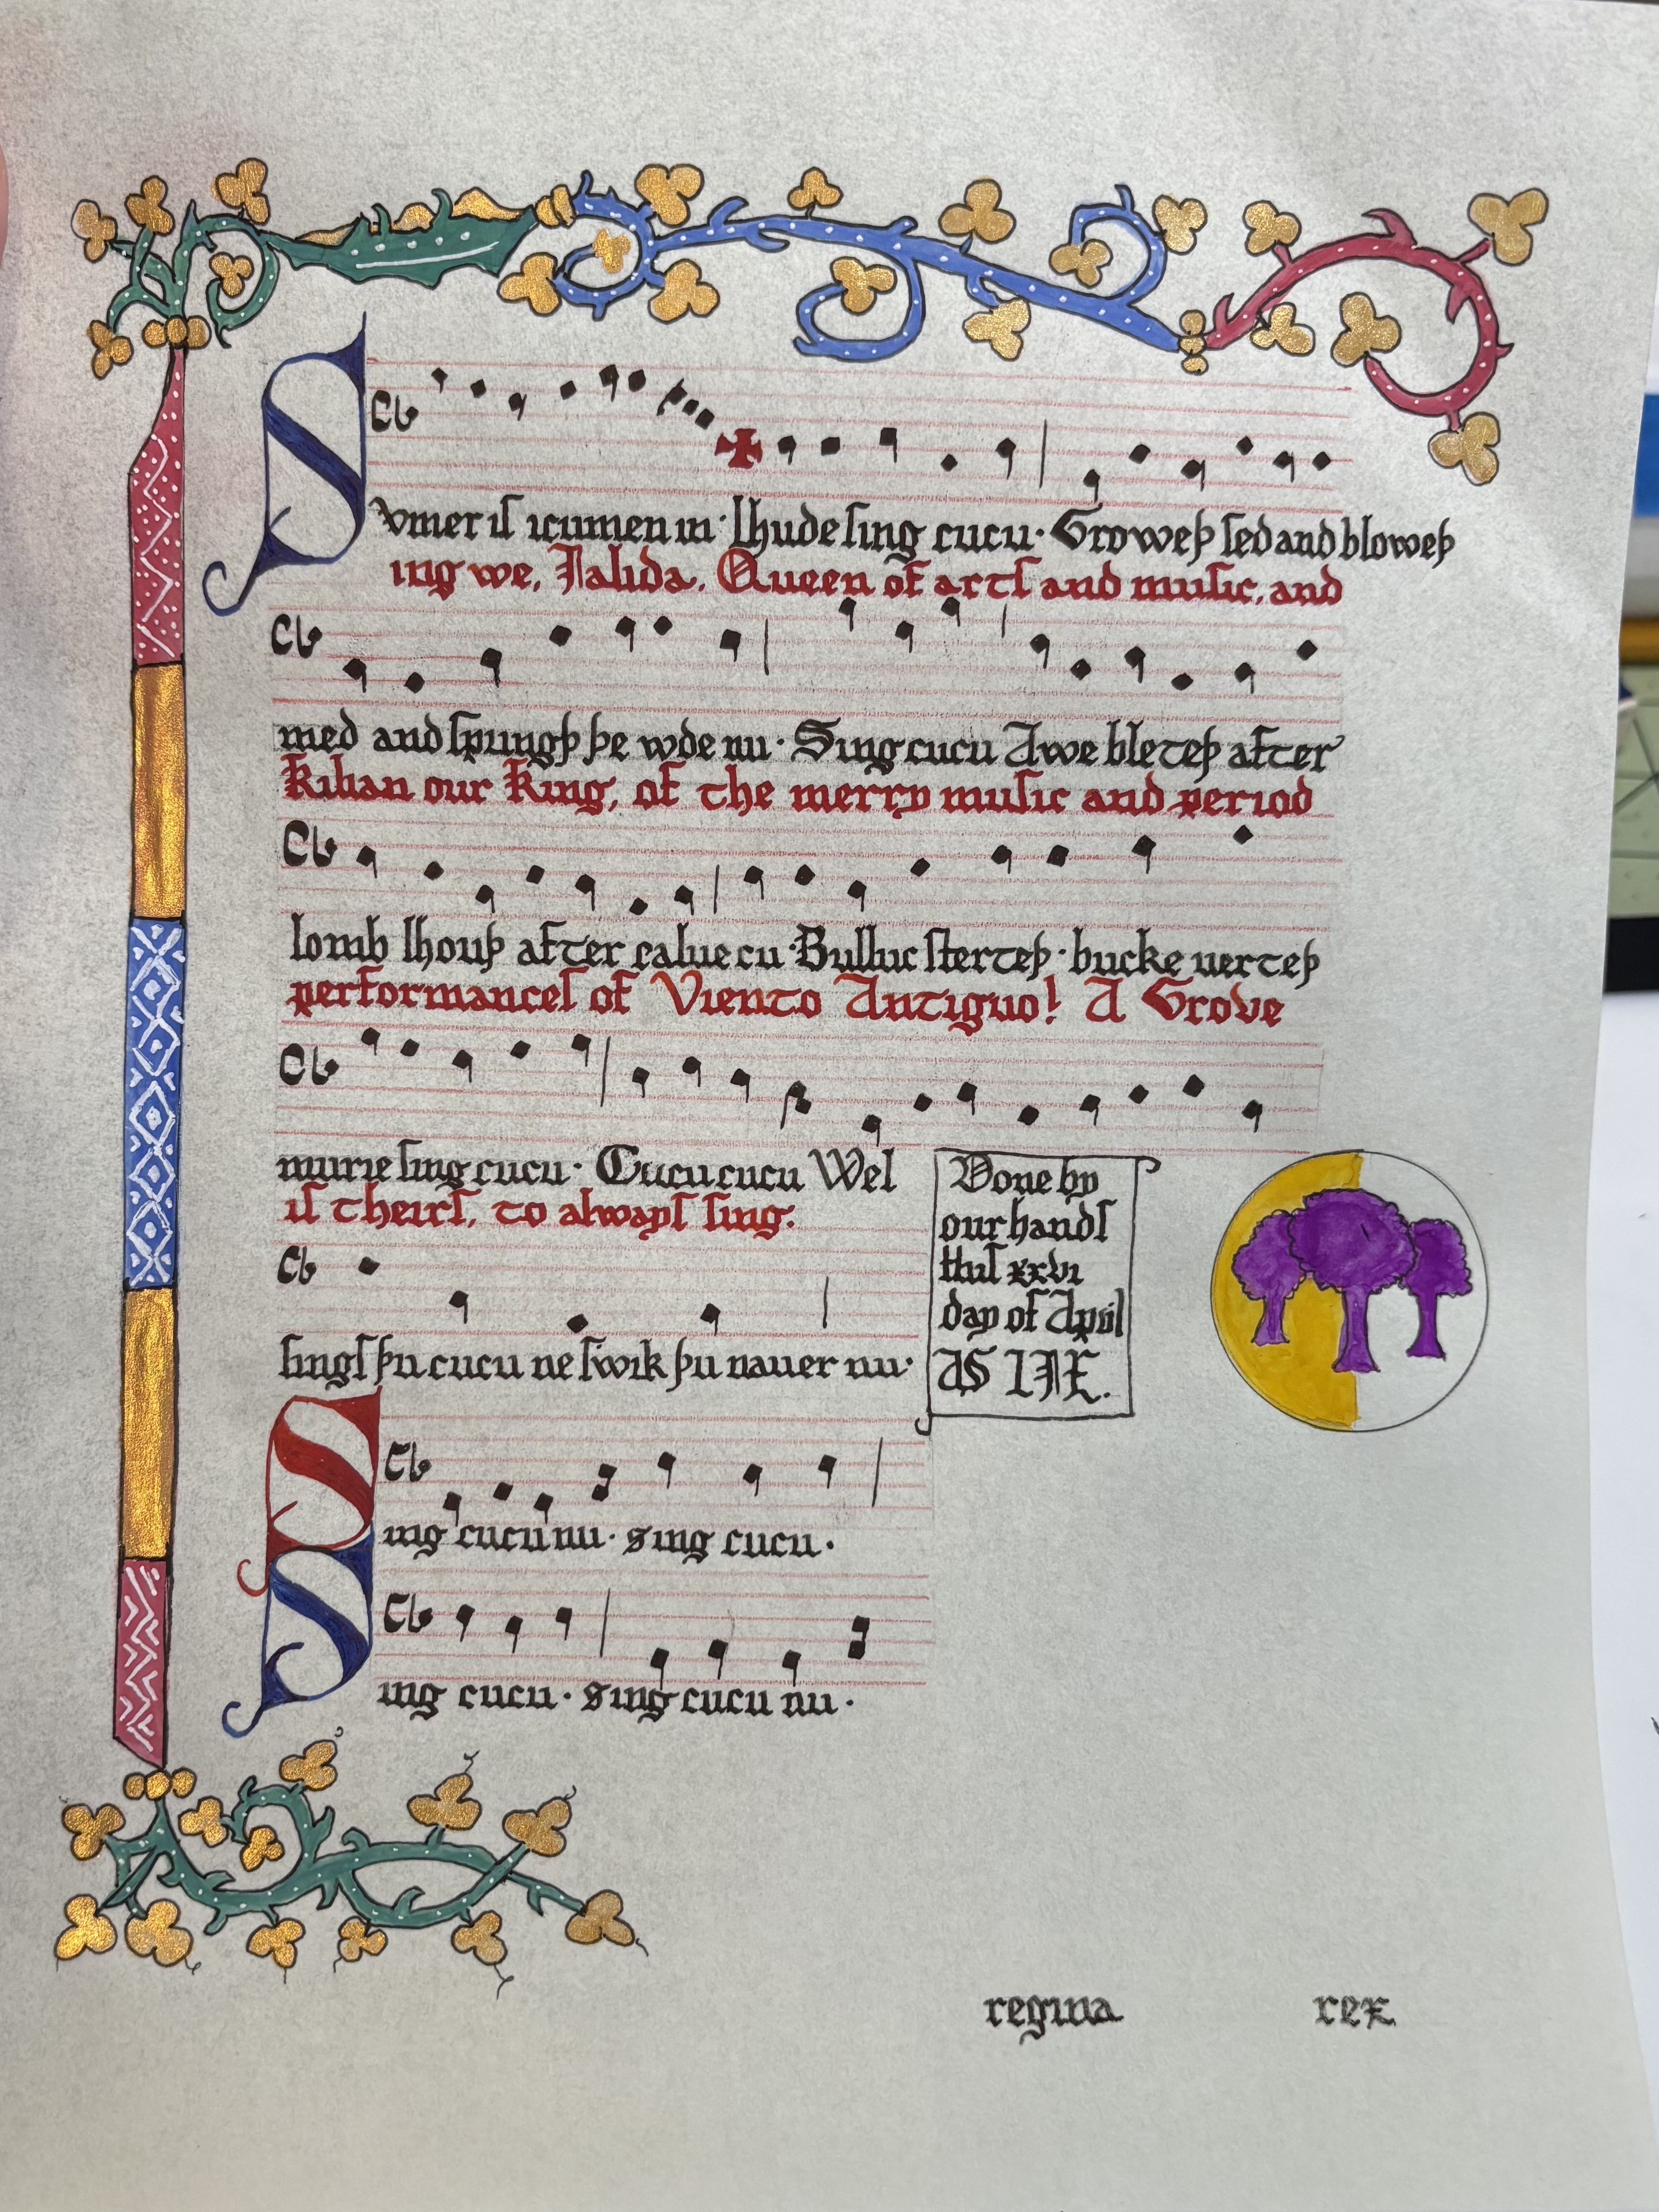 Svmer iſ icumen in · lhude ſing cucu · Groweþ ſed and bloweþ
ing we, Jalida, Queen of artſ and muſic, and
med and ſpringþ þe wde nu · Sing cucu Awe bleteþ after
Kilian our King, of the merry muſic and period
lomb lhouþ after calue cu · Bulluc ſterteþ · bucke uerteþ
performanceſ of Viento Antiguo! A Grove
murie ſing cucu · Cucu cucu Wel
iſ theirſ, to alwayſ ſing.
ſingſ þu cucu ne ſwik þu nauer nu ·
Done by
our handſ
thiſ xxvi
day of April
AS LIX.
Sing cucu nu · sing cucu ·
Sing cucu · sing cucu nu ·
regina rex